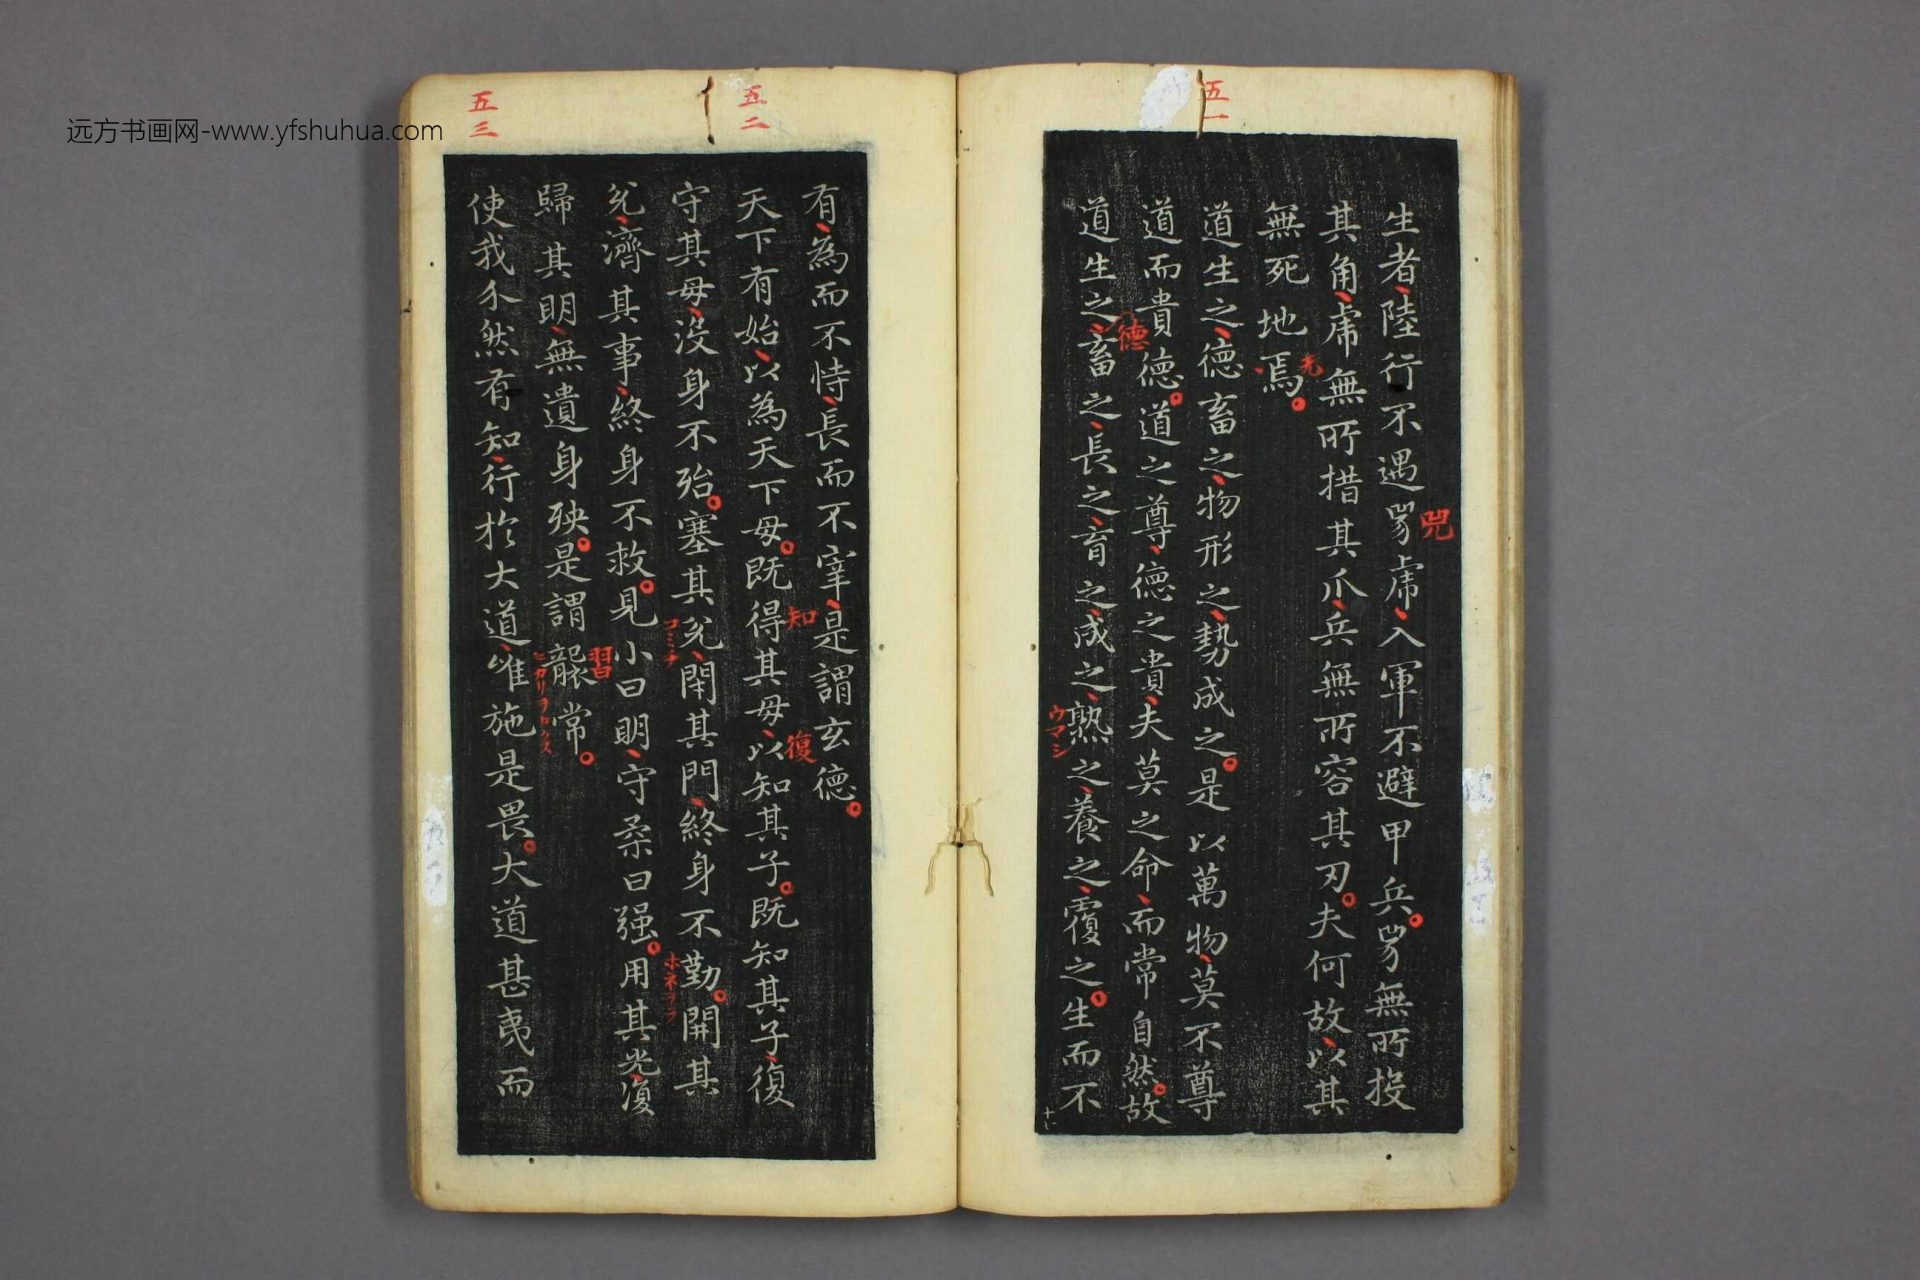 远方书画网-www.yfshuhua.com
五一
生者陸行不遇兕虎入軍不避甲兵兕無所投
兕
其角虎無所措其爪兵無所容其刃夫何故以其
無死地焉
道生之德畜之物形之勢成之是以萬物莫不尊
道而貴德道之尊德之貴夫莫之命而常自然故
德
道生之畜之長之育之成之熟之養之覆之生而不
ウマシ
五二
有為而不恃長而不宰是謂玄德
天下有始以為天下母既得其母以知其子既知其子復
知
復
守其母沒身不殆塞其兌閇其門終身不勤開其
兌濟其事終身不救見小曰明守柔曰强用其光復
歸其明無遺身殃是謂襲常
習
五三
使我介然有知行於大道唯施是畏大道甚夷而